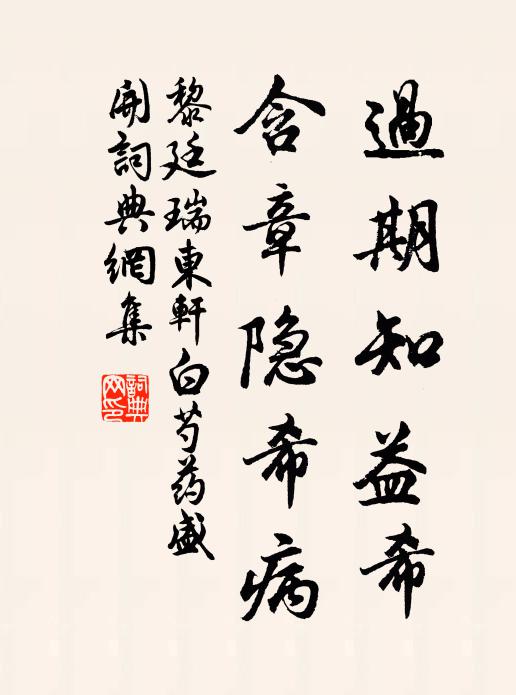 過期知益希
含章隐希病
黎廷瑞東軒白芍葯盛
開詞典網集
詞典网印